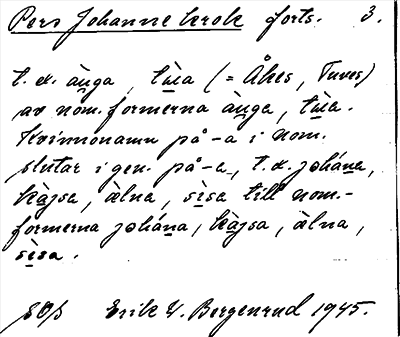 Pers Johanne krok forts. 3.
t.ex. ànga, tùa (= Åkes, Tures)
av nom. formerna ànga, tùa.
Kvinnonamn på -a i nom.
slutar i gen. på -a, t.ex. johána,
kàjsa, àlna, sìsa till nom.-
formerna johána, kàjsa, àlna,
sìsa.
Erik V. Bergenrud 1945.